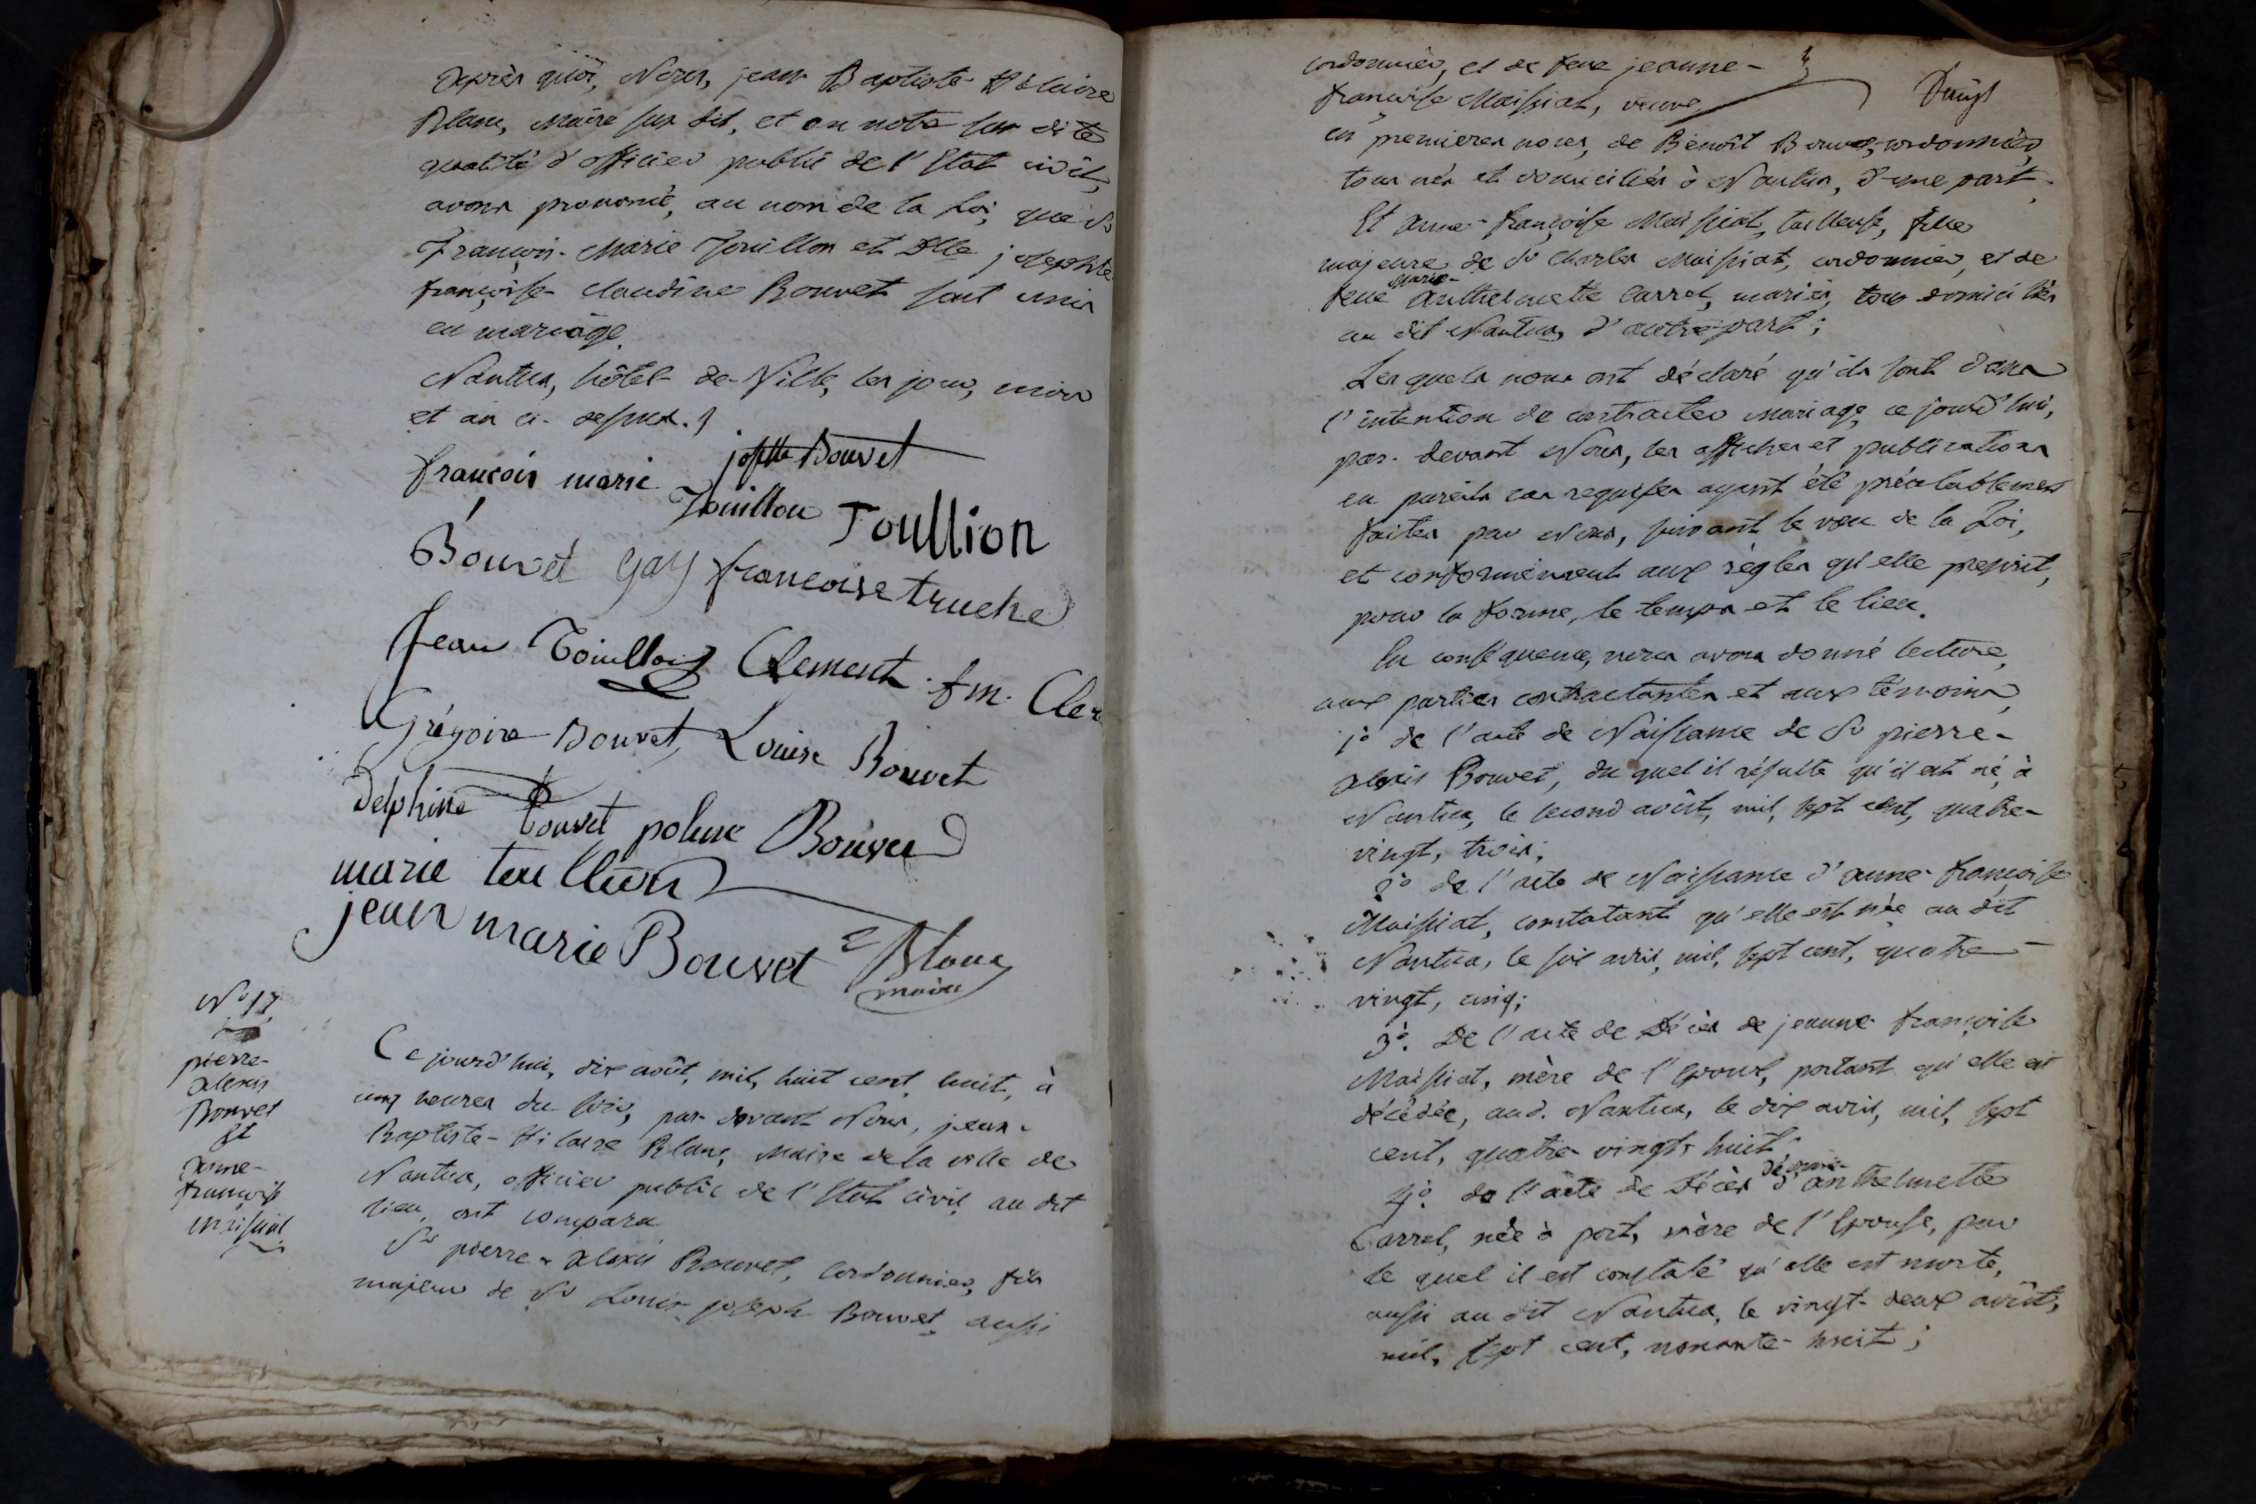 après quoi, Nous, jean Baptiste hilaire
Blanc, Maire sus dit, et en notre sus dite
qualité d'officier public de l'Etat civil,
avons prononcé, au nom de la Loi, que Sr
François-Marie Touillon et Dlle josephte
françoise claudine Bouvet sont unis
en mariage.
Nantua, hôtel de Ville, les jour, mois
et an ci-dessus.
josette Bouvet
françois marie
Touillon Toullion
Bouvet Gay francoise truche
Jean Touillon Clement fm. Cler
Grégoire Bouvet, Louise Bouvet
Delphine Bouvet poline Bouvet
marie touillon
jean marie Bouvet Blanc
maire
N° 17
pierre-
alexis
Bouvet
Et
anne-
françoise
Maissiat
Ce jourd'hui, dix août, mil, huit cent, huit, à
cinq heures du soir, par devant Nous, jean-
Baptiste-Hilaire Blanc, Maire de la ville de
Nantua, officier public de l'Etat civil au dit
lieu, ont comparu
Sr pierre-alexis Bouvet, Cordonnier, fils
majeur de Sr Louis-joseph Bouvet, aussi
cordonnier, et de feue jeanne-
françoise Maissiat, veuve
Vingt
en premieres noces, de Benoît Bouvet, cordonnier,
tous nés et domiciliés à Nantua, d'une part,
Et anne-françoise Maissiat, tailleuse, fille
majeure de Sr Charles Maissiat, cordonnier, et de
marie-
feue anthelmette Carrel, mariés, tous domiciliés
au dit Nantua, d'autre part;
Les quels nous ont déclaré qu'ils sont dans
l'intention de contracter Mariage ce jourd'hui,
par-devant Nous, les affiches et publications
en pareils cas requises ayant été préalablement
faites par Nous, suivant le vœu de la Loi,
et conformément aux règles qu'elle prescrit,
pour la forme, le temps et le lieu.
En conséquence, nous avons donné lecture,
aux parties contractantes et aux témoins,
1° de l'acte de Naissance de Sr pierre-
alexis Bouvet, du quel il résulte qu'il est né, à
Nantua, le second août, mil, sept cent, quatre-
vingt, trois;
2° de l'acte de Naissance d'anne-françoise
Maissiat, constatant qu'elle est née au dit
Nantua, le six avril, mil, sept cent, quatre
vingt, cinq;
3°. De l'acte de Décès de jeanne françoise
Maissiat, mère de l'Epoux, portant qu'elle est
décédée, aud. Nantua, le dix avril, mil, sept
cent, quatre vingt, huit
4° de l'acte de Décès d'anthelmette
Carrel, née à port, mère de l'Epouse, par
le quel il est constaté qu'elle est morte,
aussi au dit Nantua, le vingt-deux août,
mil, sept cent, nonante-huit;